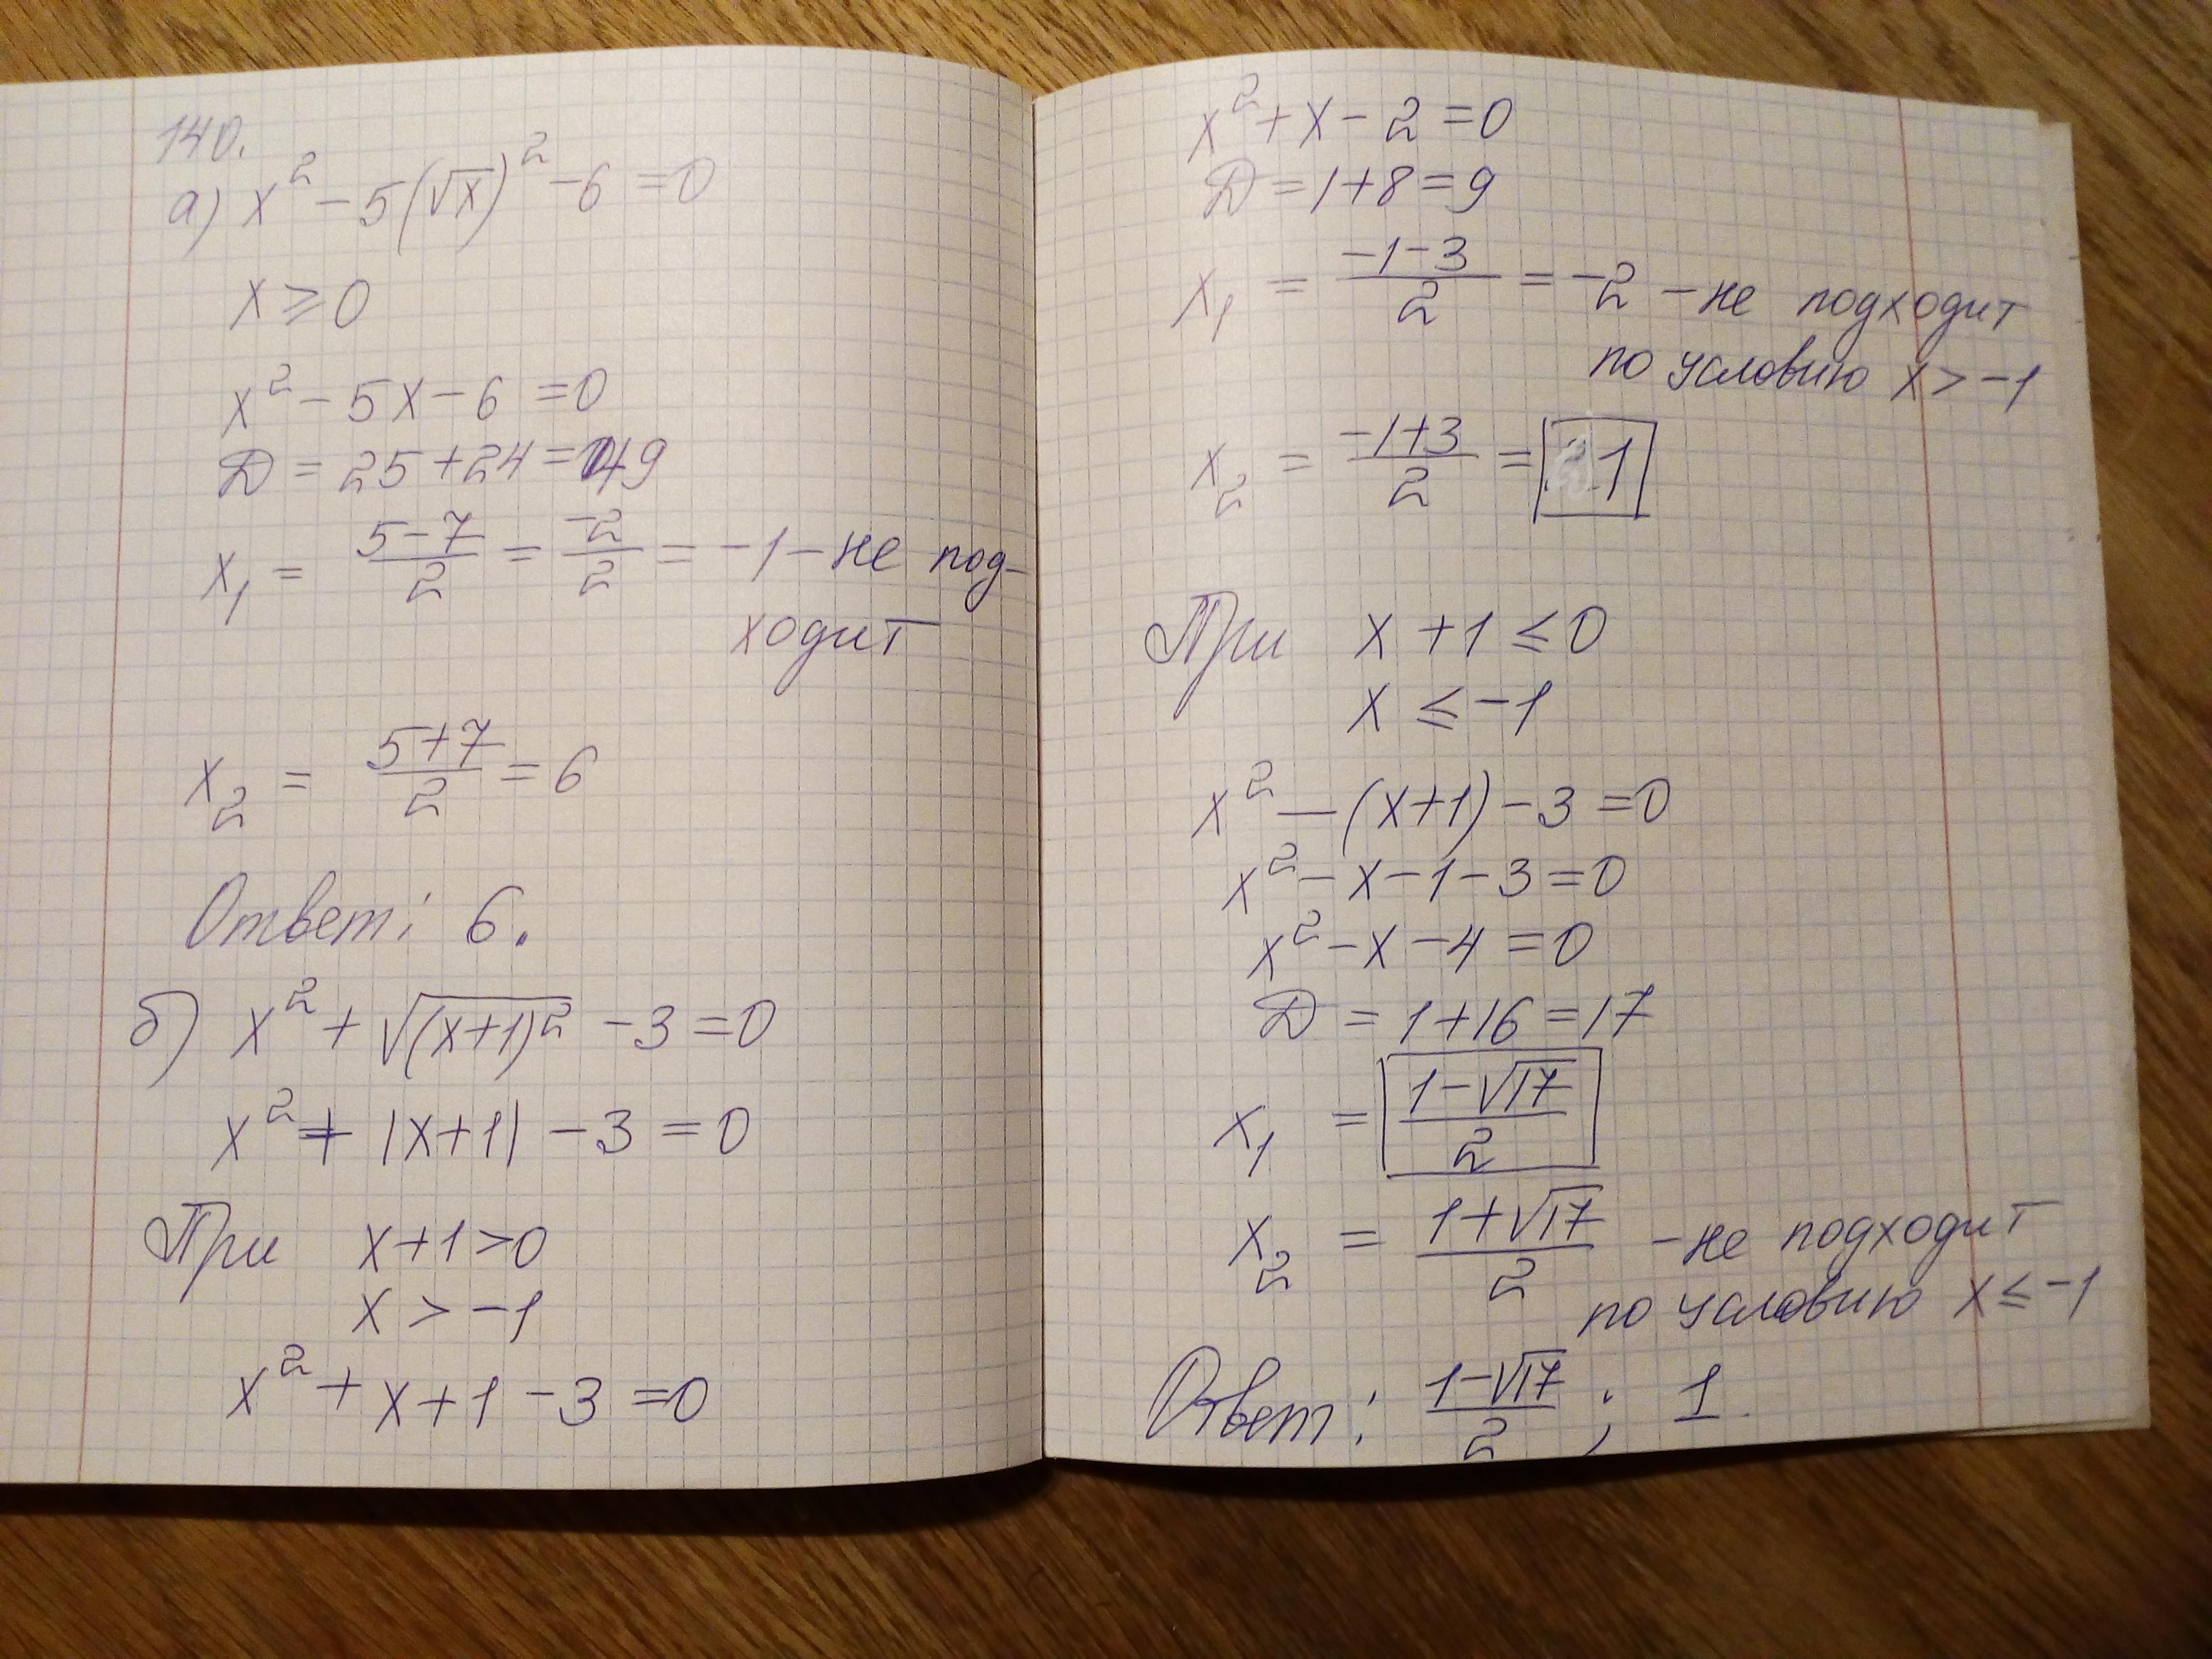 140.
а) x² - 5(√x)² - 6 = 0
x ≥ 0
x² - 5x - 6 = 0
D = 25 + 24 = 49
x₁ = (5-7)/2 = -2/2 = -1 - не под-
ходит
x₂ = (5+7)/2 = 6
Ответ: 6.
б) x² + √((x+1)²) - 3 = 0
x² + |x+1| - 3 = 0
При x+1 > 0
x > -1
x² + x + 1 - 3 = 0
x² + x - 2 = 0
D = 1+8 = 9
x₁ = (-1-3)/2 = -2 - не подходит
по условию x > -1
x₂ = (-1+3)/2 = 1
При x + 1 ≤ 0
x ≤ -1
x² - (x+1) - 3 = 0
x² - x - 1 - 3 = 0
x² - x - 4 = 0
D = 1+16 = 17
x₁ = (1-√17)/2
x₂ = (1+√17)/2 - не подходит
по условию x ≤ -1
Ответ: (1-√17)/2 ; 1.